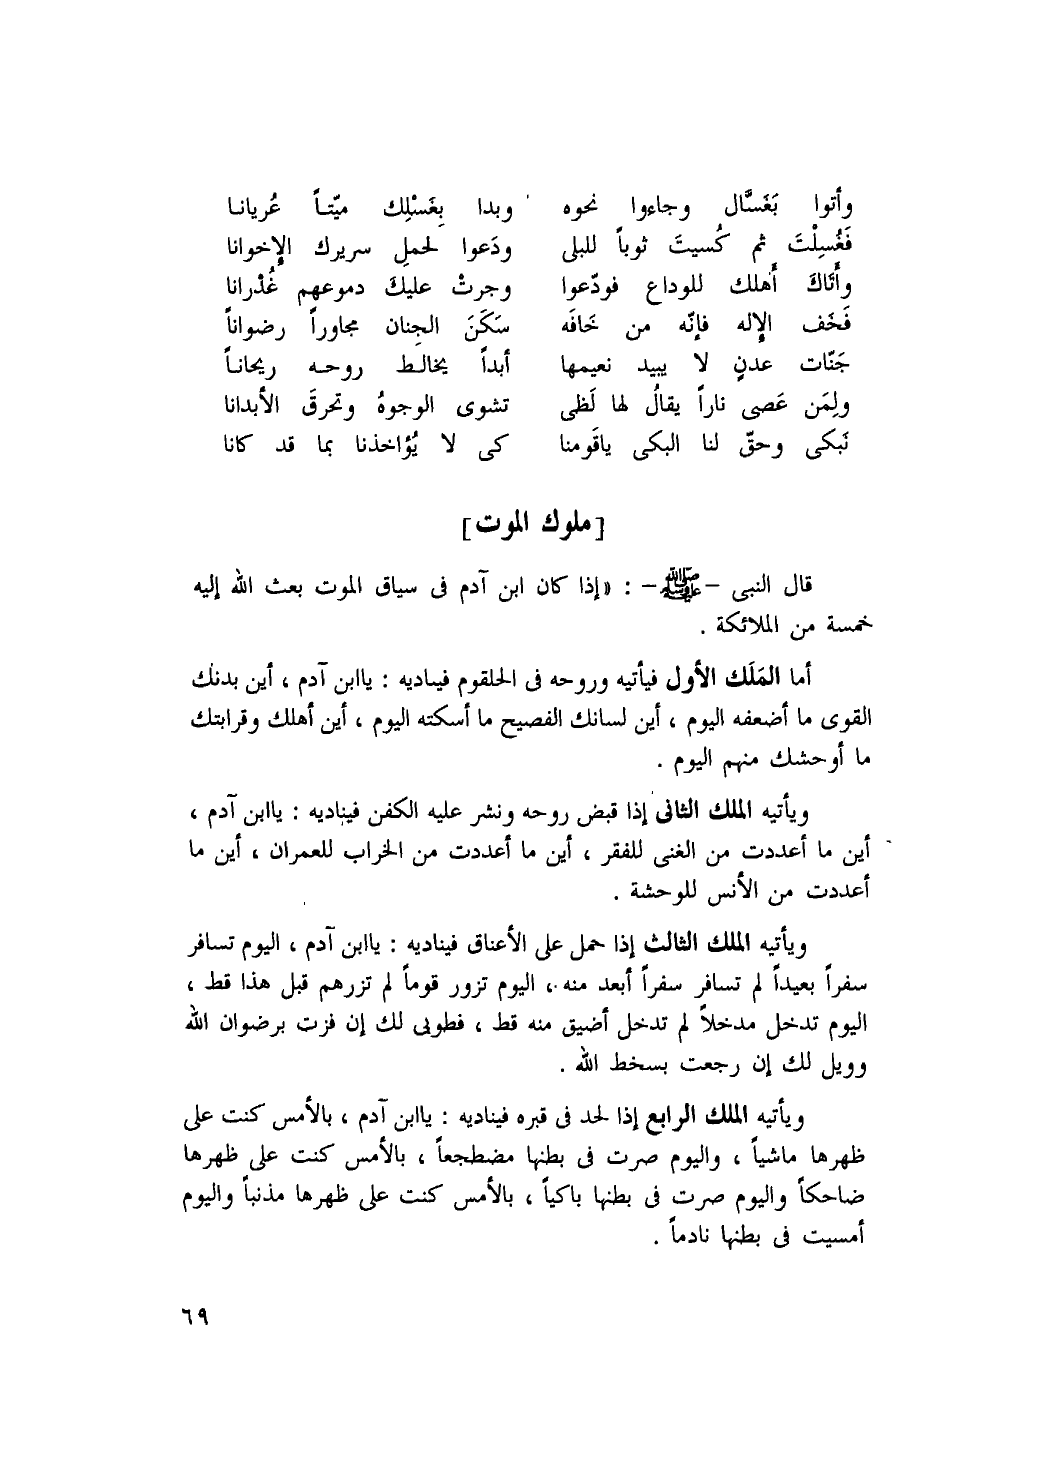 وأتوا بَغَسَّال وجاءوا نحوه وبدا بِغَسْلِك ميّتاً عُريانا
فَغُسِلْتَ ثم كُسيتَ ثوباً للبلى ودَعوا لحملِ سريرك الإخوانا
وأَتَاكَ أَهلك للوداع فودّعوا وجرتْ عليكَ دموعهم غُدْرانا
فَخَف الإله فإنّه من خَافَه سَكَنَ الجِنان مجاوراً رضواناً
جَنّات عدنٍ لا يبيد نعيمها أبداً يخالط روحه ريحاناً
ولِمَن عَصى ناراً يقالُ لها لَظى تشوى الوجوهُ وتحرقَ الأبدانا
نَبكى وحقّ لنا البكى ياقَومنا كى لا يُؤاخذنا بما قد كانا
[ملوك الموت]
قال النبى – ﷺ – : «إذا كان ابن آدم فى سياق الموت بعث الله إليه
خمسة من الملائكة .
أما المَلَك الأول فيأتيه وروحه فى الحلقوم فيناديه : ياابن آدم ، أين بدنك
القوى ما أضعفه اليوم ، أين لسانك الفصيح ما أسكته اليوم ، أين أهلك وقرابتك
ما أوحشك منهم اليوم .
ويأتيه الملك الثانى إذا قبض روحه ونشر عليه الكفن فيناديه : ياابن آدم ،
أين ما أعددت من الغنى للفقر ، أين ما أعددت من الخراب للعمران ، أين ما
أعددت من الأنس للوحشة .
ويأتيه الملك الثالث إذا حمل على الأعناق فيناديه : ياابن آدم ، اليوم تسافر
سفراً بعيداً لم تسافر سفراً أبعد منه ، اليوم تزور قوماً لم تزرهم قبل هذا قط ،
اليوم تدخل مدخلاً لم تدخل أضيق منه قط ، فطوبى لك إن فزت برضوان الله
وويل لك إن رجعت بسخط الله .
ويأتيه الملك الرابع إذا لحد فى قبره فيناديه : ياابن آدم ، بالأمس كنت على
ظهرها ماشياً ، واليوم صرت فى بطنها مضطجعاً ، بالأمس كنت على ظهرها
ضاحكاً واليوم صرت فى بطنها باكياً ، بالأمس كنت على ظهرها مذنباً واليوم
أمسيت فى بطنها نادماً .
٦٩